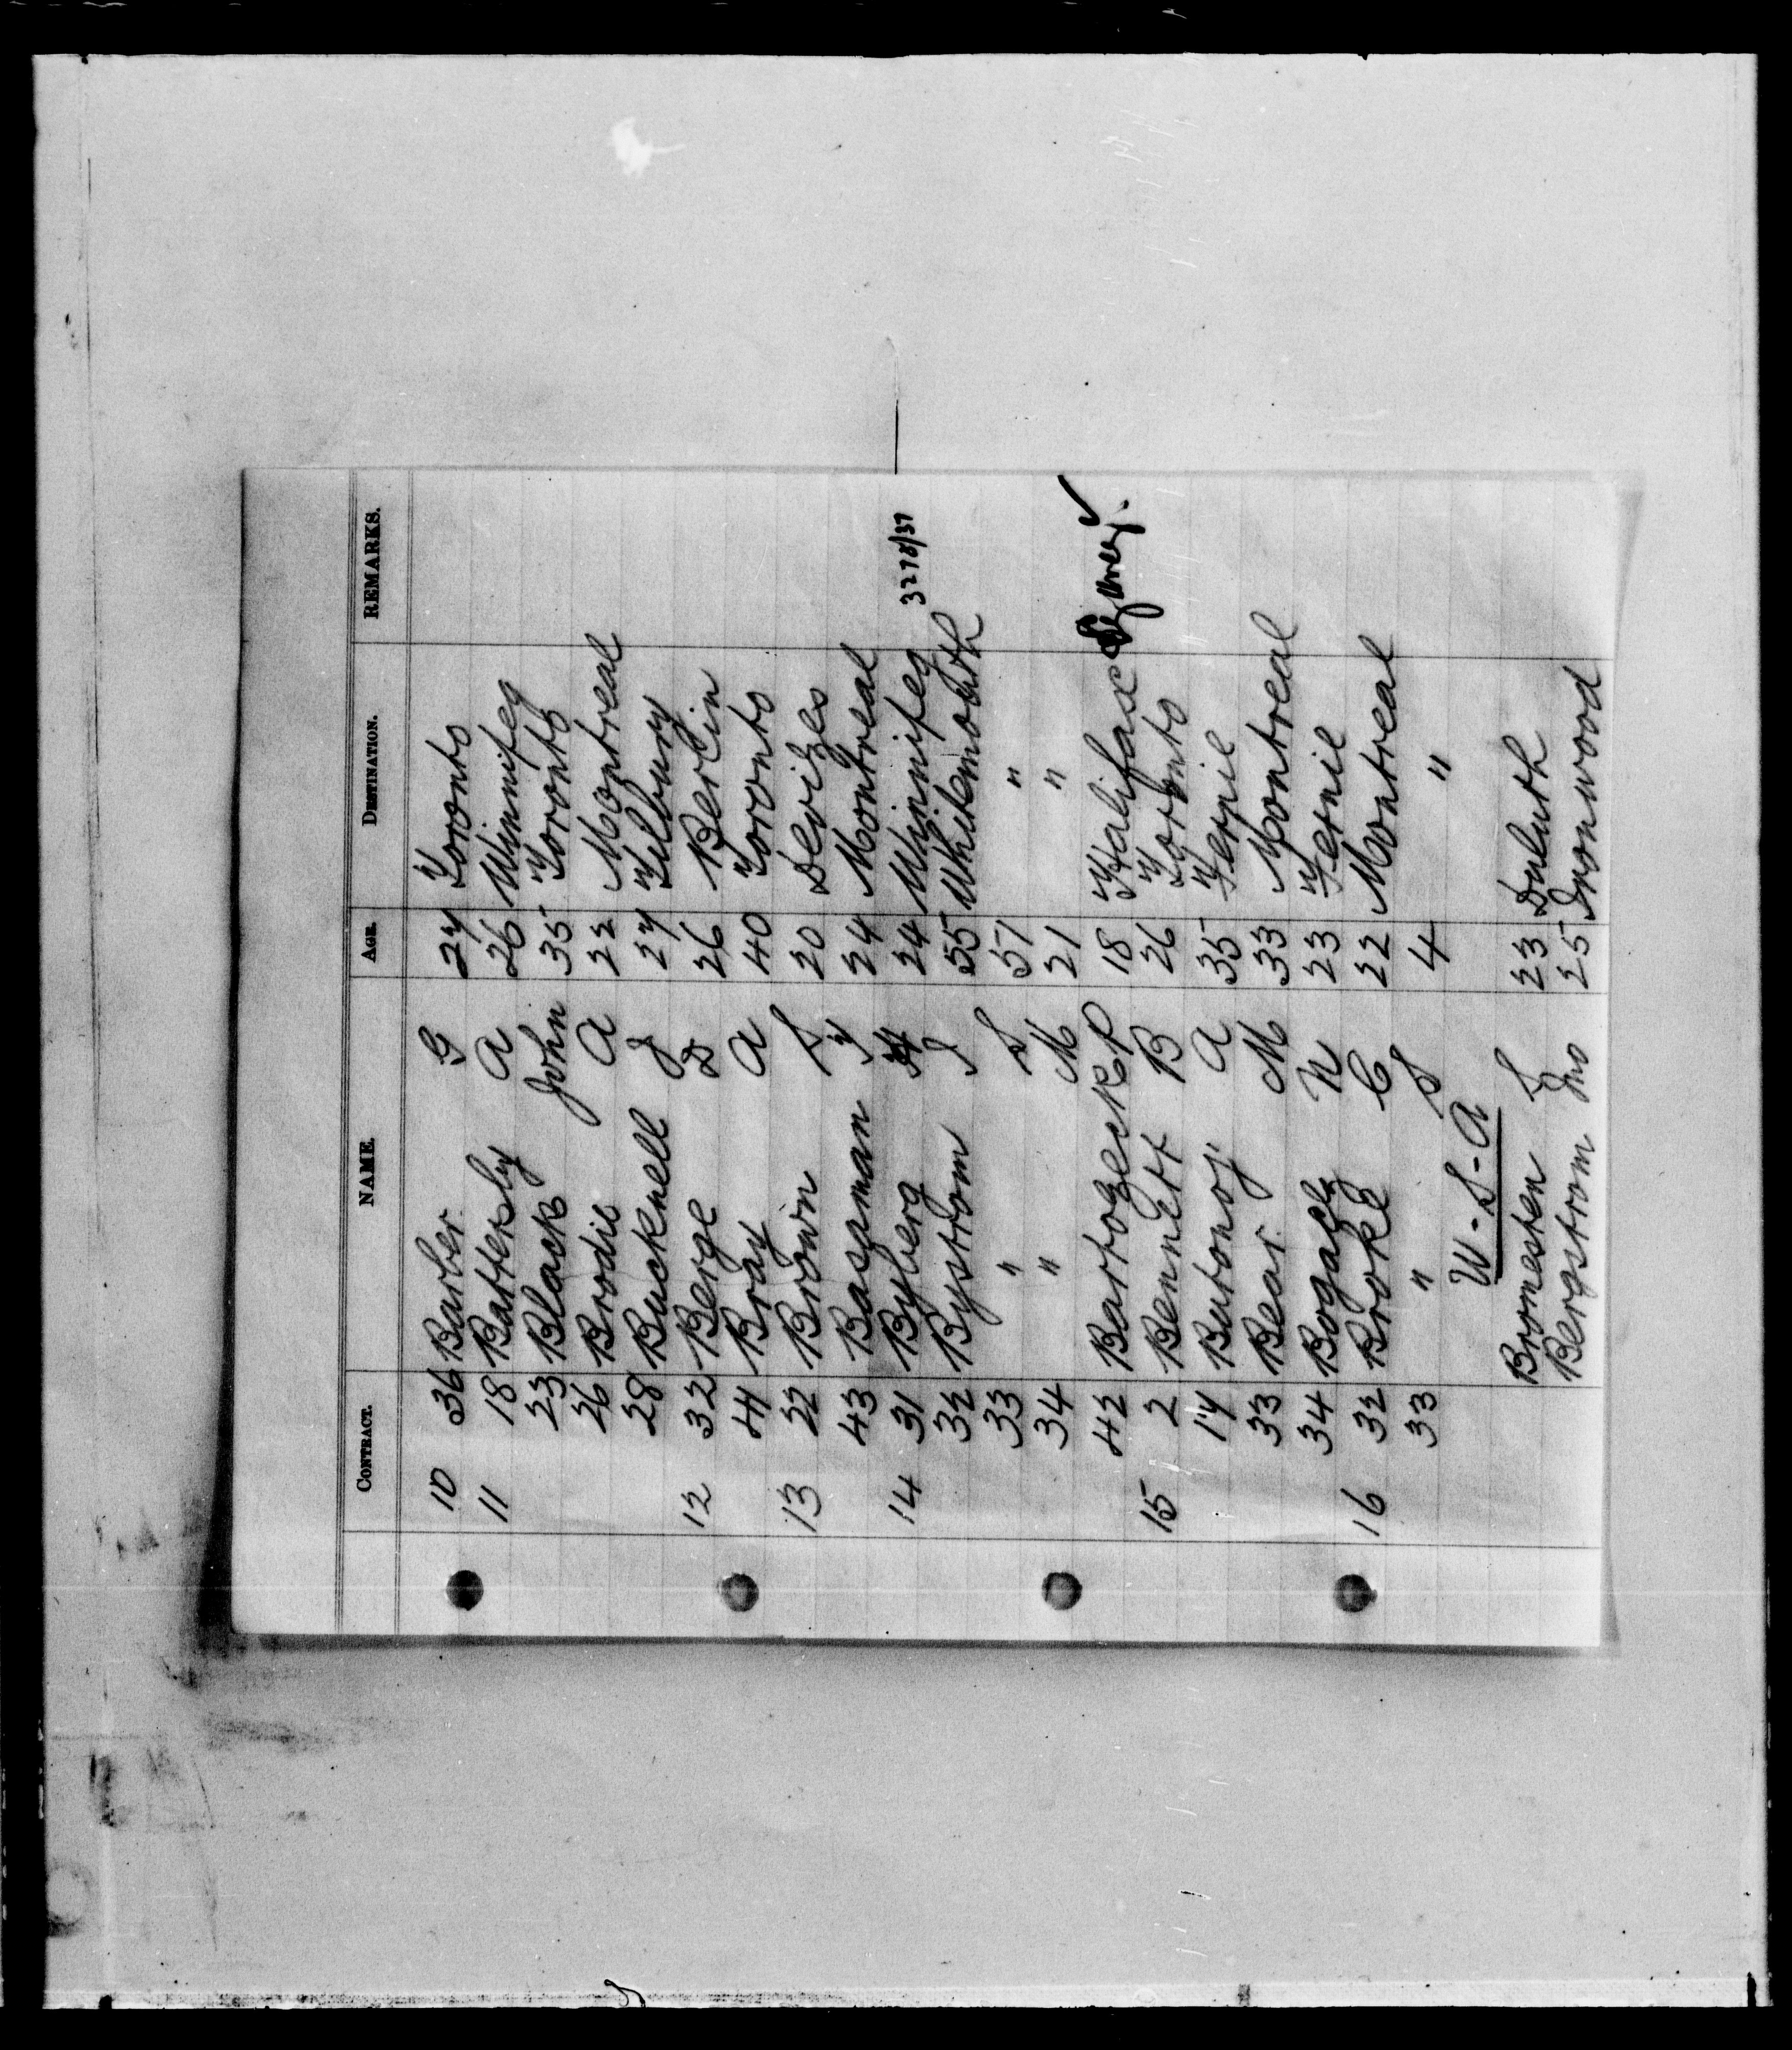 CONTRACT. NAME. AGE. DESTINATION. REMARKS.
10 36 Barber G 27 Toronto
11 18 Battersby A 26 Winnipeg
23 Black John 35 Toronto
26 Brodie A 22 Montreal
28 Bucknell J 27 Tilbury
12 32 Berge D 26 Berlin
44 Bray A 40 Toronto
13 22 Brown S 20 Devizes
43 Bassman F 24 Montreal
14 31 Byberg H 24 Winnipeg 3278/37
32 Bystrom J 55 Whitemouth
33 " S 57 "
34 " M 21 "
42 Bartozeck P 18 Halifax ✓
15 2 Bennett B 26 Toronto
17 Butonoj A 35 Fernie
33 Bear M 33 Montreal
34 Bogach N 23 Fernie
16 32 Brooke C 22 Montreal
33 " S 4 "
U-S-A
Bromesten S 23 Duluth
Bergstrom Jno 25 Ironwood